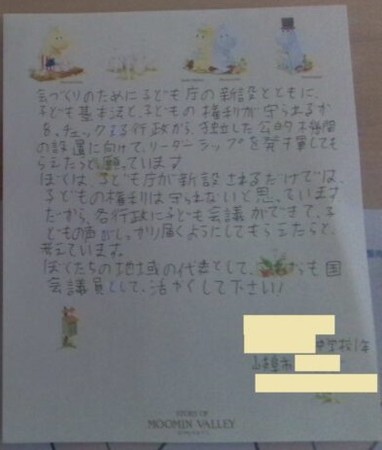 会づくりのために子ども庁の新設とともに、
子ども基本法と、子どもの権利が守られるか
を、チェックする行政から、独立した公的機関
の設置に向けて、リーダーシップを発揮しても
らえたらと願っています
ぼくは、子ども庁が新設されるだけでは、
子どもの権利は守られないと思っています
だから、各行政に子ども会議ができて、子
どもの声がしっかり届くようにしてもらえたらと、
考えています。
ぼくたちの地域の代表として、これからも国
会議員として、活かくして下さい!
中学校1年
STORY OF
MOOMIN VALLEY